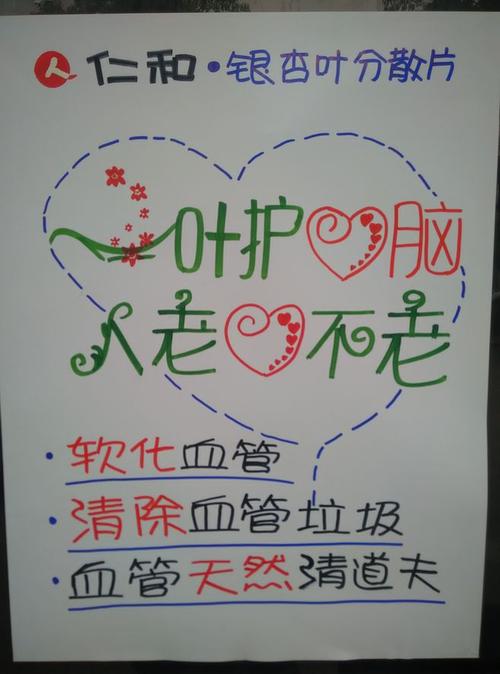 人 仁和·银杏叶分散片
一叶护心脑
人老心不老
·软化血管
·清除血管垃圾
·血管天然清道夫